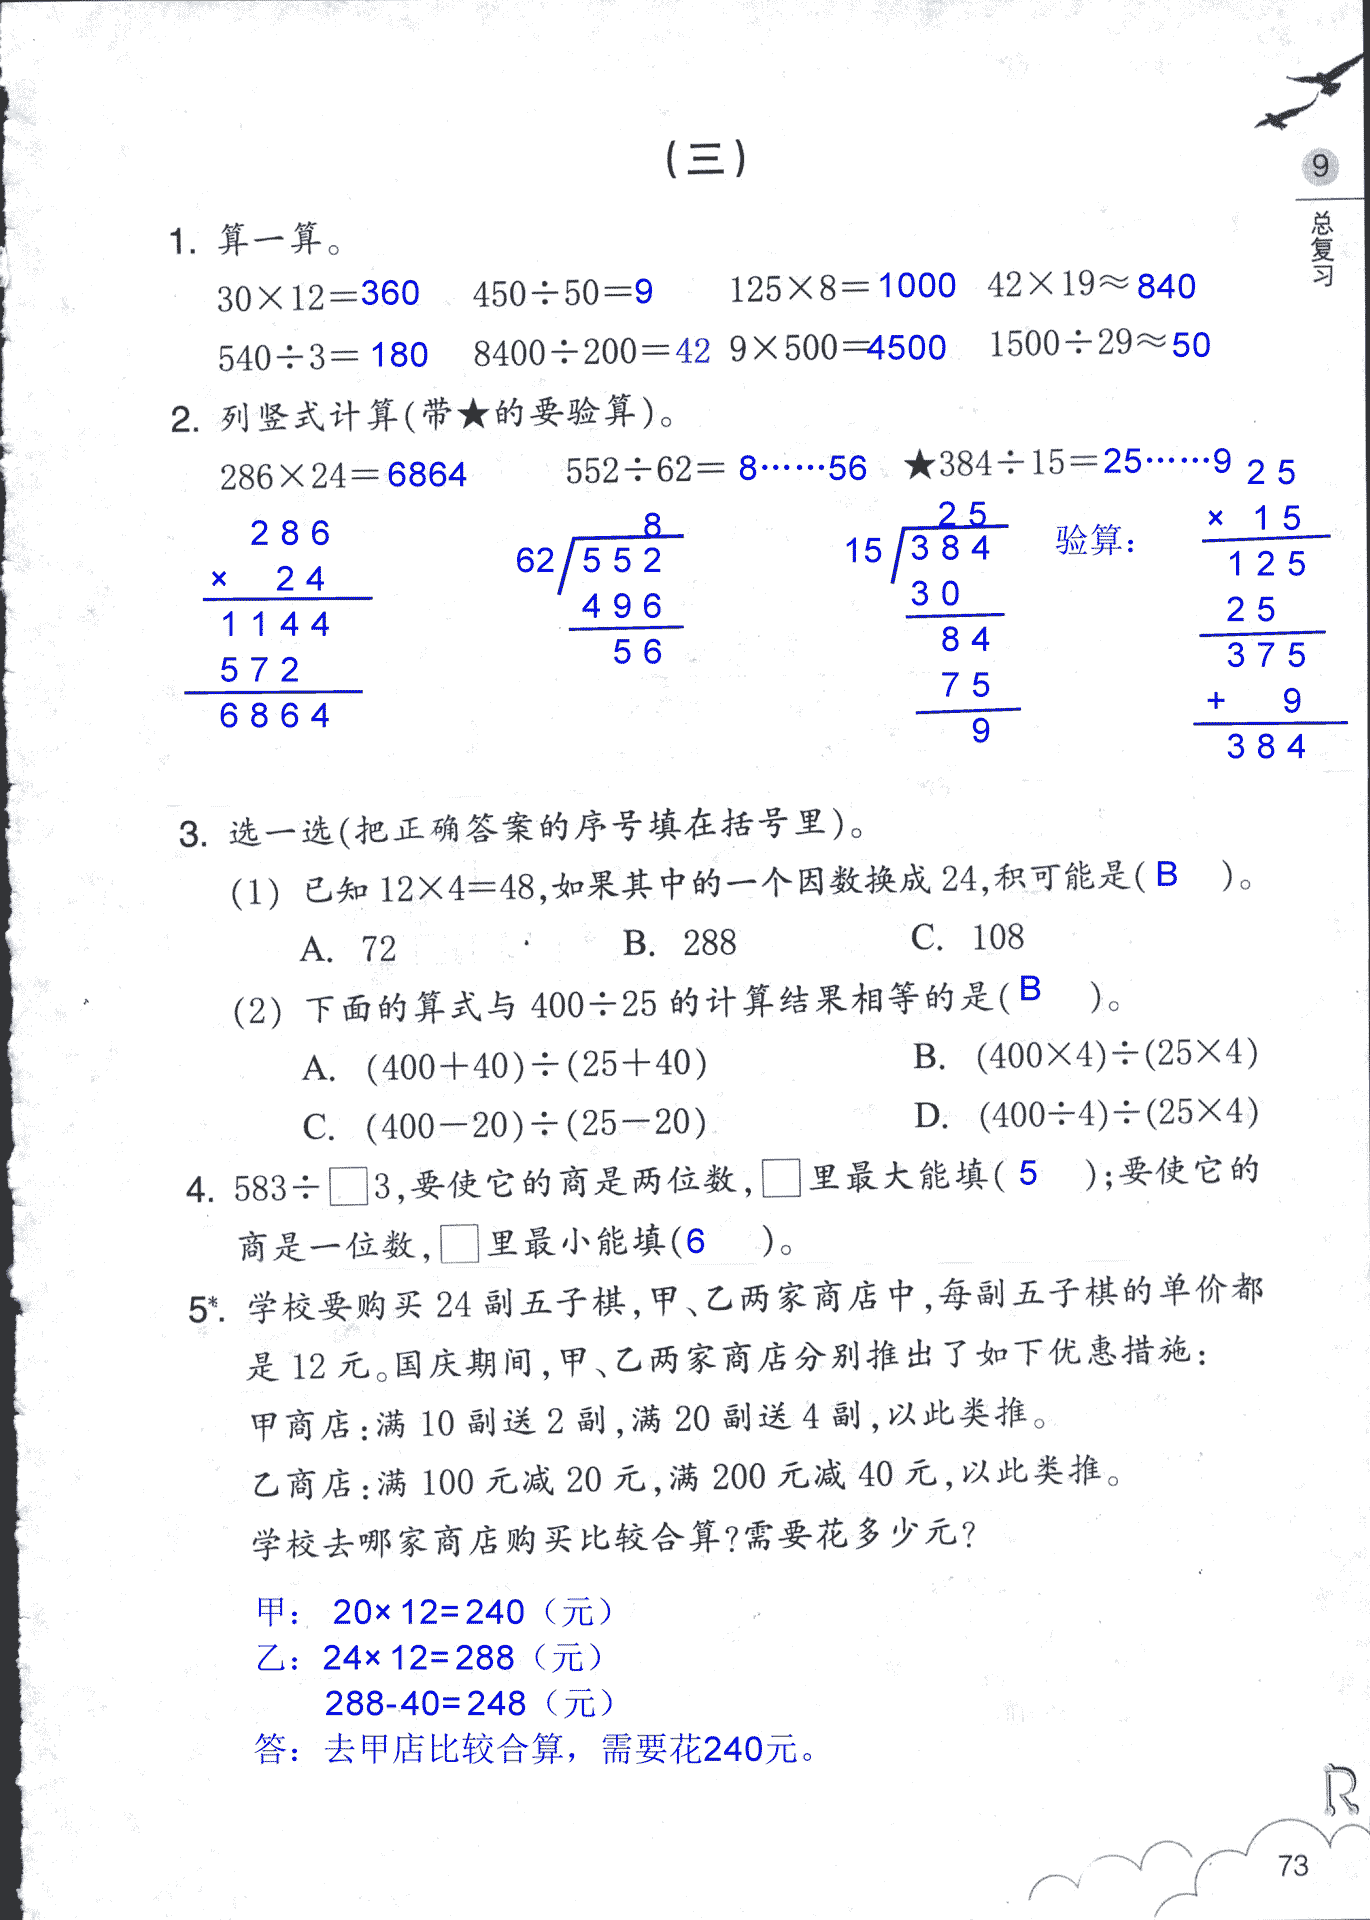 (三)
9
总复习
1. 算一算。
30×12=360 450÷50=9 125×8=1000 42×19≈840
540÷3=180 8400÷200=42 9×500=4500 1500÷29≈50
2. 列竖式计算(带★的要验算)。
286×24=6864 552÷62=8……56 ★384÷15=25……9
286
× 24
1144
572
6864
8
62 552
496
56
25
15 384
30
84
75
9
验算:
25
× 15
125
25
375
+ 9
384
3. 选一选(把正确答案的序号填在括号里)。
(1) 已知 12×4=48,如果其中的一个因数换成 24,积可能是(B )。
A. 72 B. 288 C. 108
(2) 下面的算式与 400÷25 的计算结果相等的是(B )。
A. (400+40)÷(25+40) B. (400×4)÷(25×4)
C. (400-20)÷(25-20) D. (400÷4)÷(25×4)
4. 583÷□3,要使它的商是两位数,□里最大能填( 5 );要使它的
商是一位数,□里最小能填(6 )。
5*. 学校要购买 24 副五子棋,甲、乙两家商店中,每副五子棋的单价都
是 12 元。国庆期间,甲、乙两家商店分别推出了如下优惠措施:
甲商店:满 10 副送 2 副,满 20 副送 4 副,以此类推。
乙商店:满 100 元减 20 元,满 200 元减 40 元,以此类推。
学校去哪家商店购买比较合算?需要花多少元?
甲: 20×12=240(元)
乙:24×12=288(元)
288-40=248(元)
答:去甲店比较合算,需要花240元。
R
73